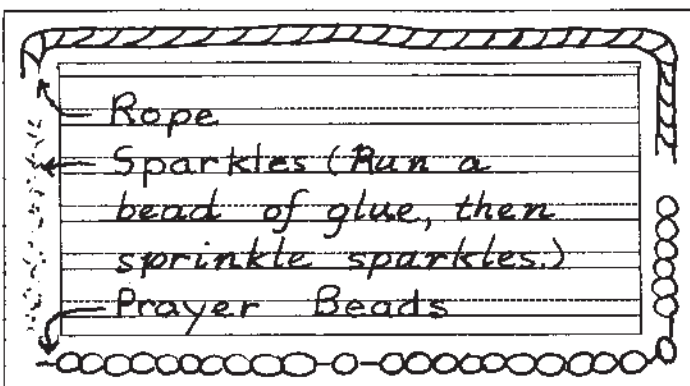 Rope
Sparkles (Run a
bead of glue, then
sprinkle sparkles.)
Prayer Beads